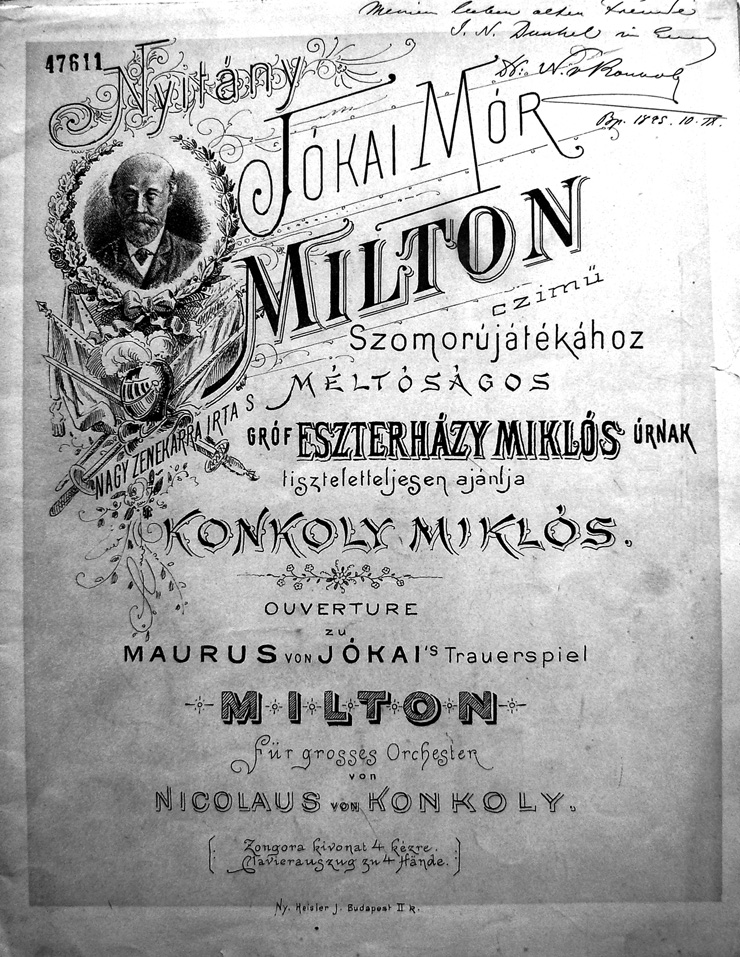 Meinem lieben alten Freunde
J. N. Dunkel in
Dr. N. v. Konkoly
Bp. 1895. 10.
47611
Nyitány
JÓKAI MÓR
MILTON
czimű
Szomorújátékához
NAGY ZENEKARRA IRTA S
MÉLTÓSÁGOS
GRÓF ESZTERHÁZY MIKLÓS ÚRNAK
tiszteletteljesen ajánlja
KONKOLY MIKLÓS.
OUVERTURE
zu
MAURUS VON JÓKAI'S Trauerspiel
MILTON
für grosses Orchester
von
NICOLAUS VON KONKOLY.
Zongora kivonat 4 kézre.
Clavierauszug zu 4 Hände.
Ny. Heisler J. Budapest II R.